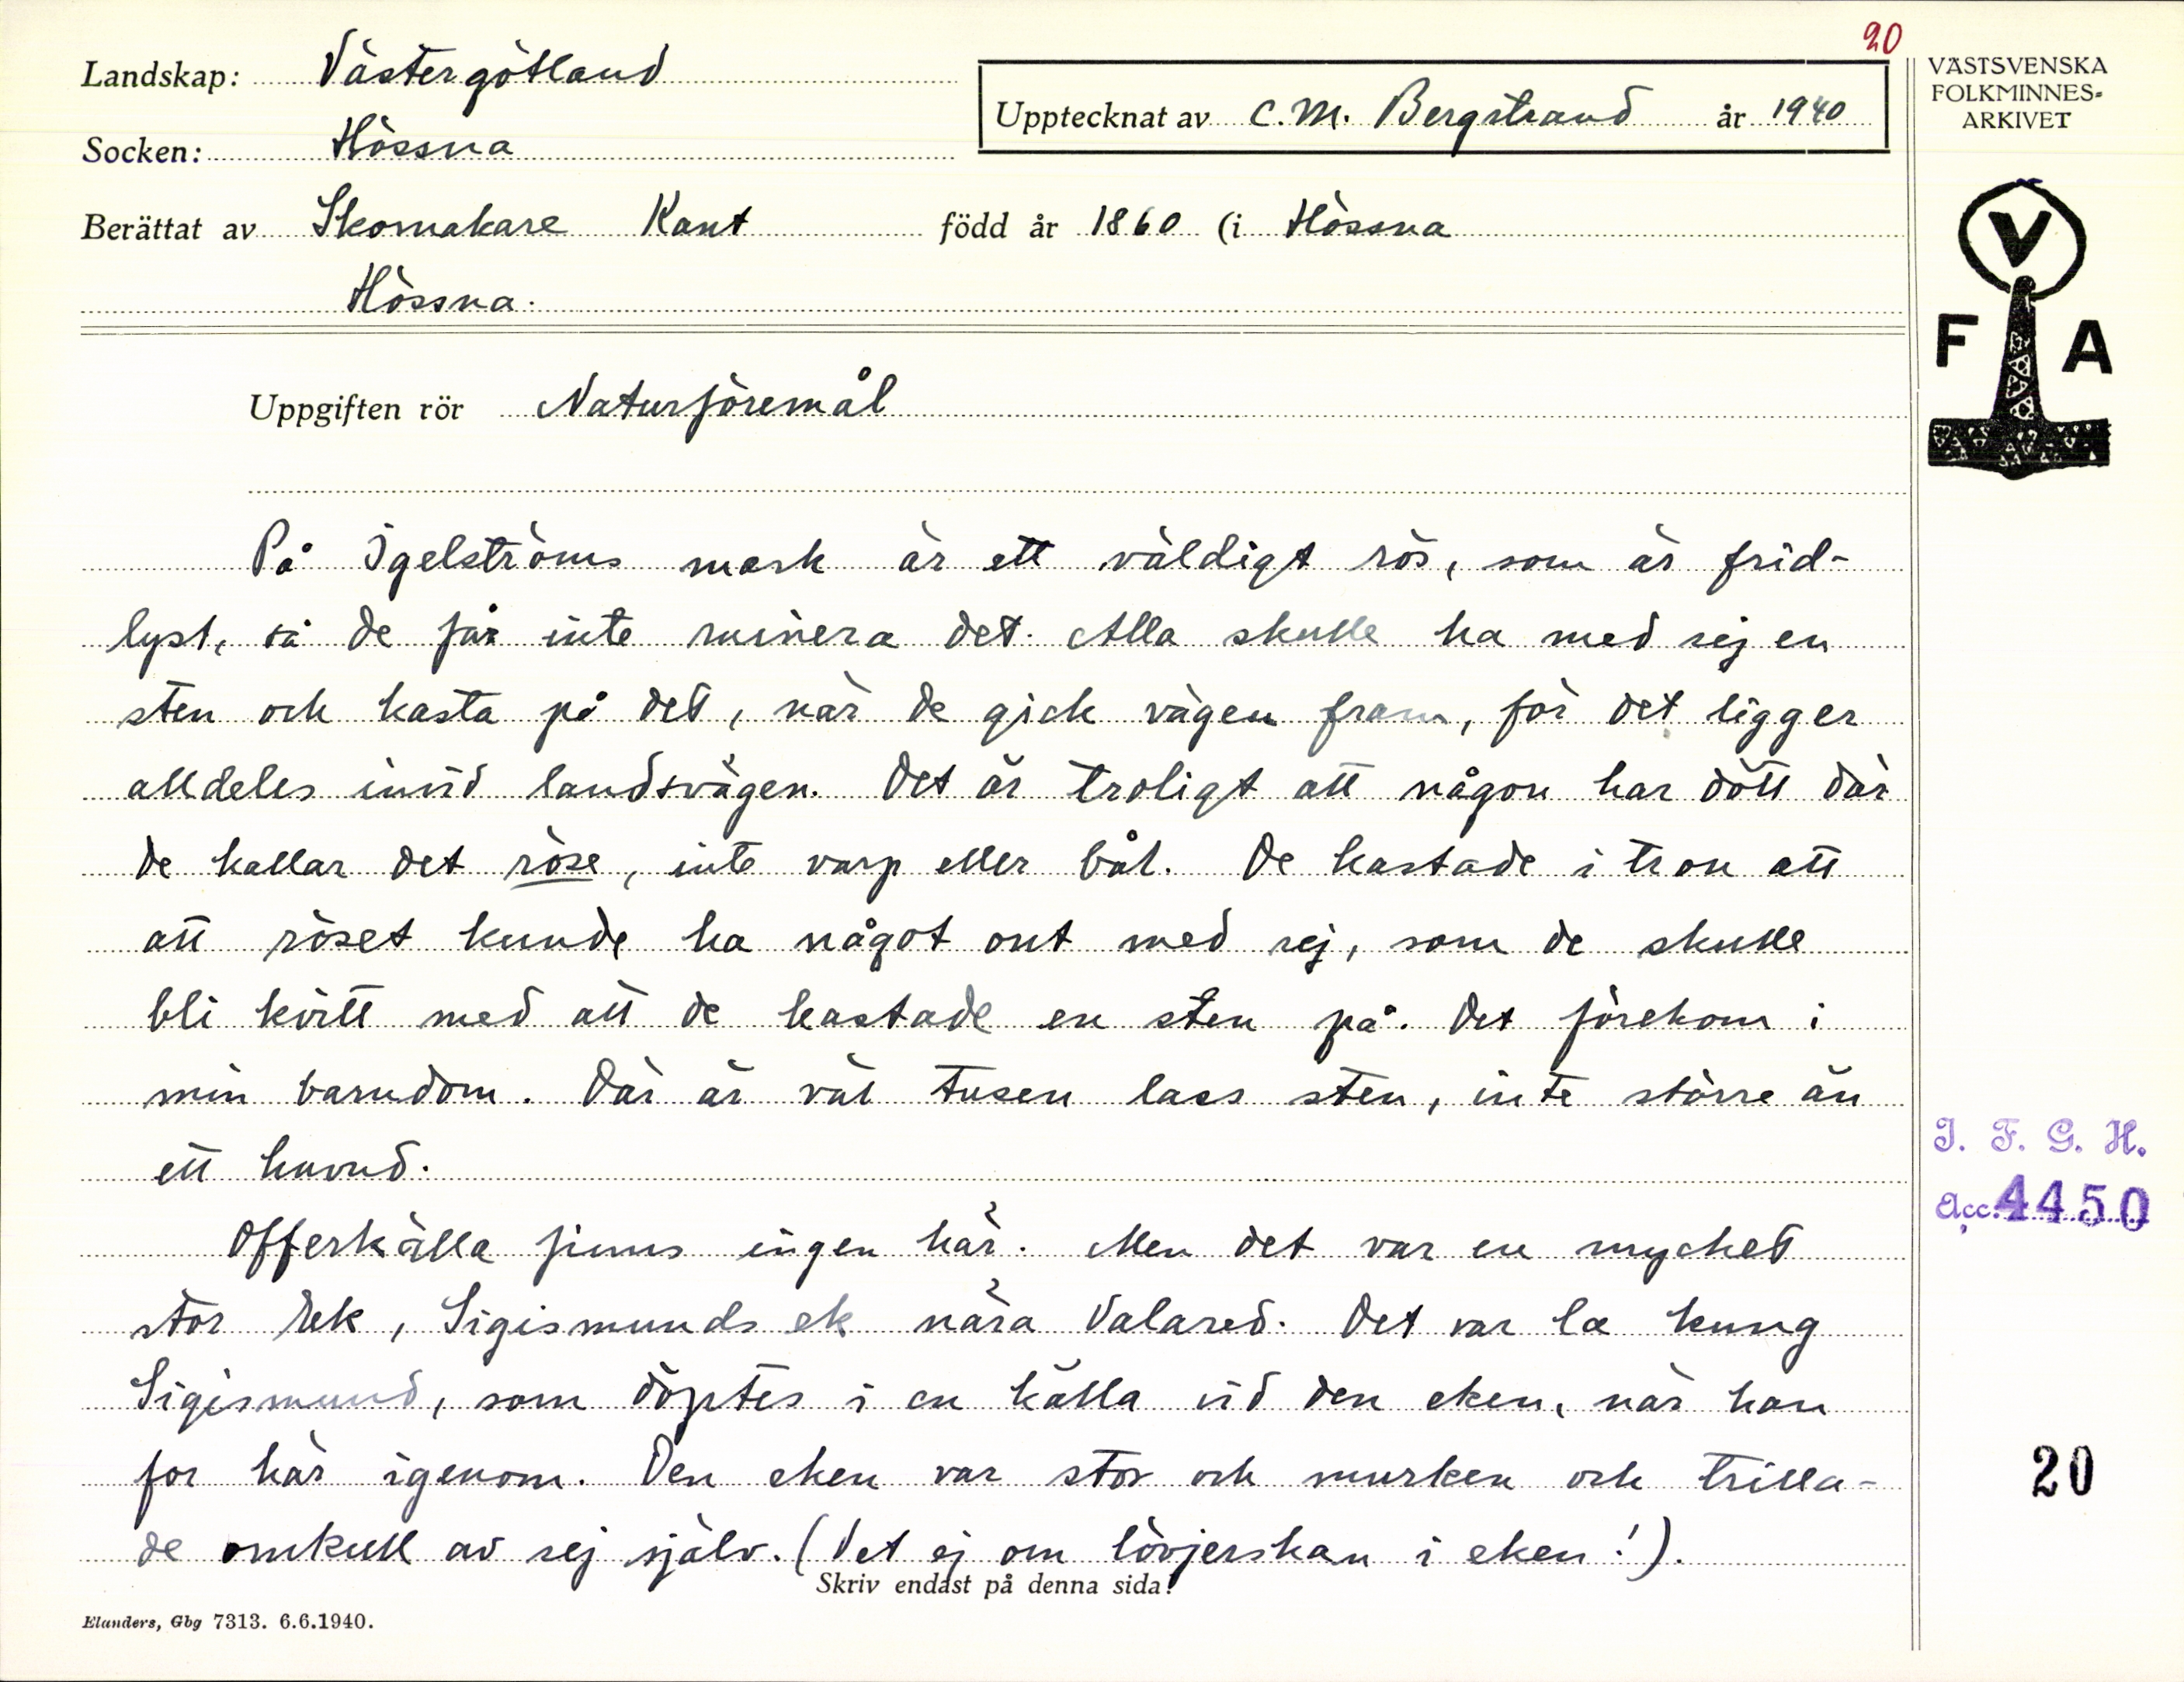 20
Landskap: Västergötland
Upptecknat av C.M. Bergstrand år 1940
VÄSTSVENSKA
FOLKMINNES-
ARKIVET
Socken: Hössna
Berättat av Skomakare Kant född år 1860 (i Hössna
Hössna.
V
F A
Uppgiften rör Naturföremål
På Igelströms mark är ett väldigt rös, som är frid-
lyst, så de får inte ruinera det. Alla skulle ha med sej en
sten och kasta på det, när de gick vägen fram, för det ligger
alldeles invid landsvägen. Det är troligt att någon har dött där
de kallar det röse, inte varp eller bål. De kastade i tron att
att röset kunde ha något ont med sej, som de skulle
bli kvitt med att de kastade en sten på. Det förekom i
min barndom. Där är väl tusen lass sten, inte större än
ett huvud.
Offerkälla finns ingen här. Men det var en mycket
stor Ek, Sigismunds ek nära Valared. Det var la kung
Sigismund, som döptes i en källa vid den eken, när han
for här igenom. Den eken var stor och murken och trilla-
de omkull av sej själv. (Vet ej om lövjerskan i eken!).
Skriv endast på denna sida!
Elanders, Gbg 7313. 6.6.1940.
I. F. G. H.
Acc. 4450
20